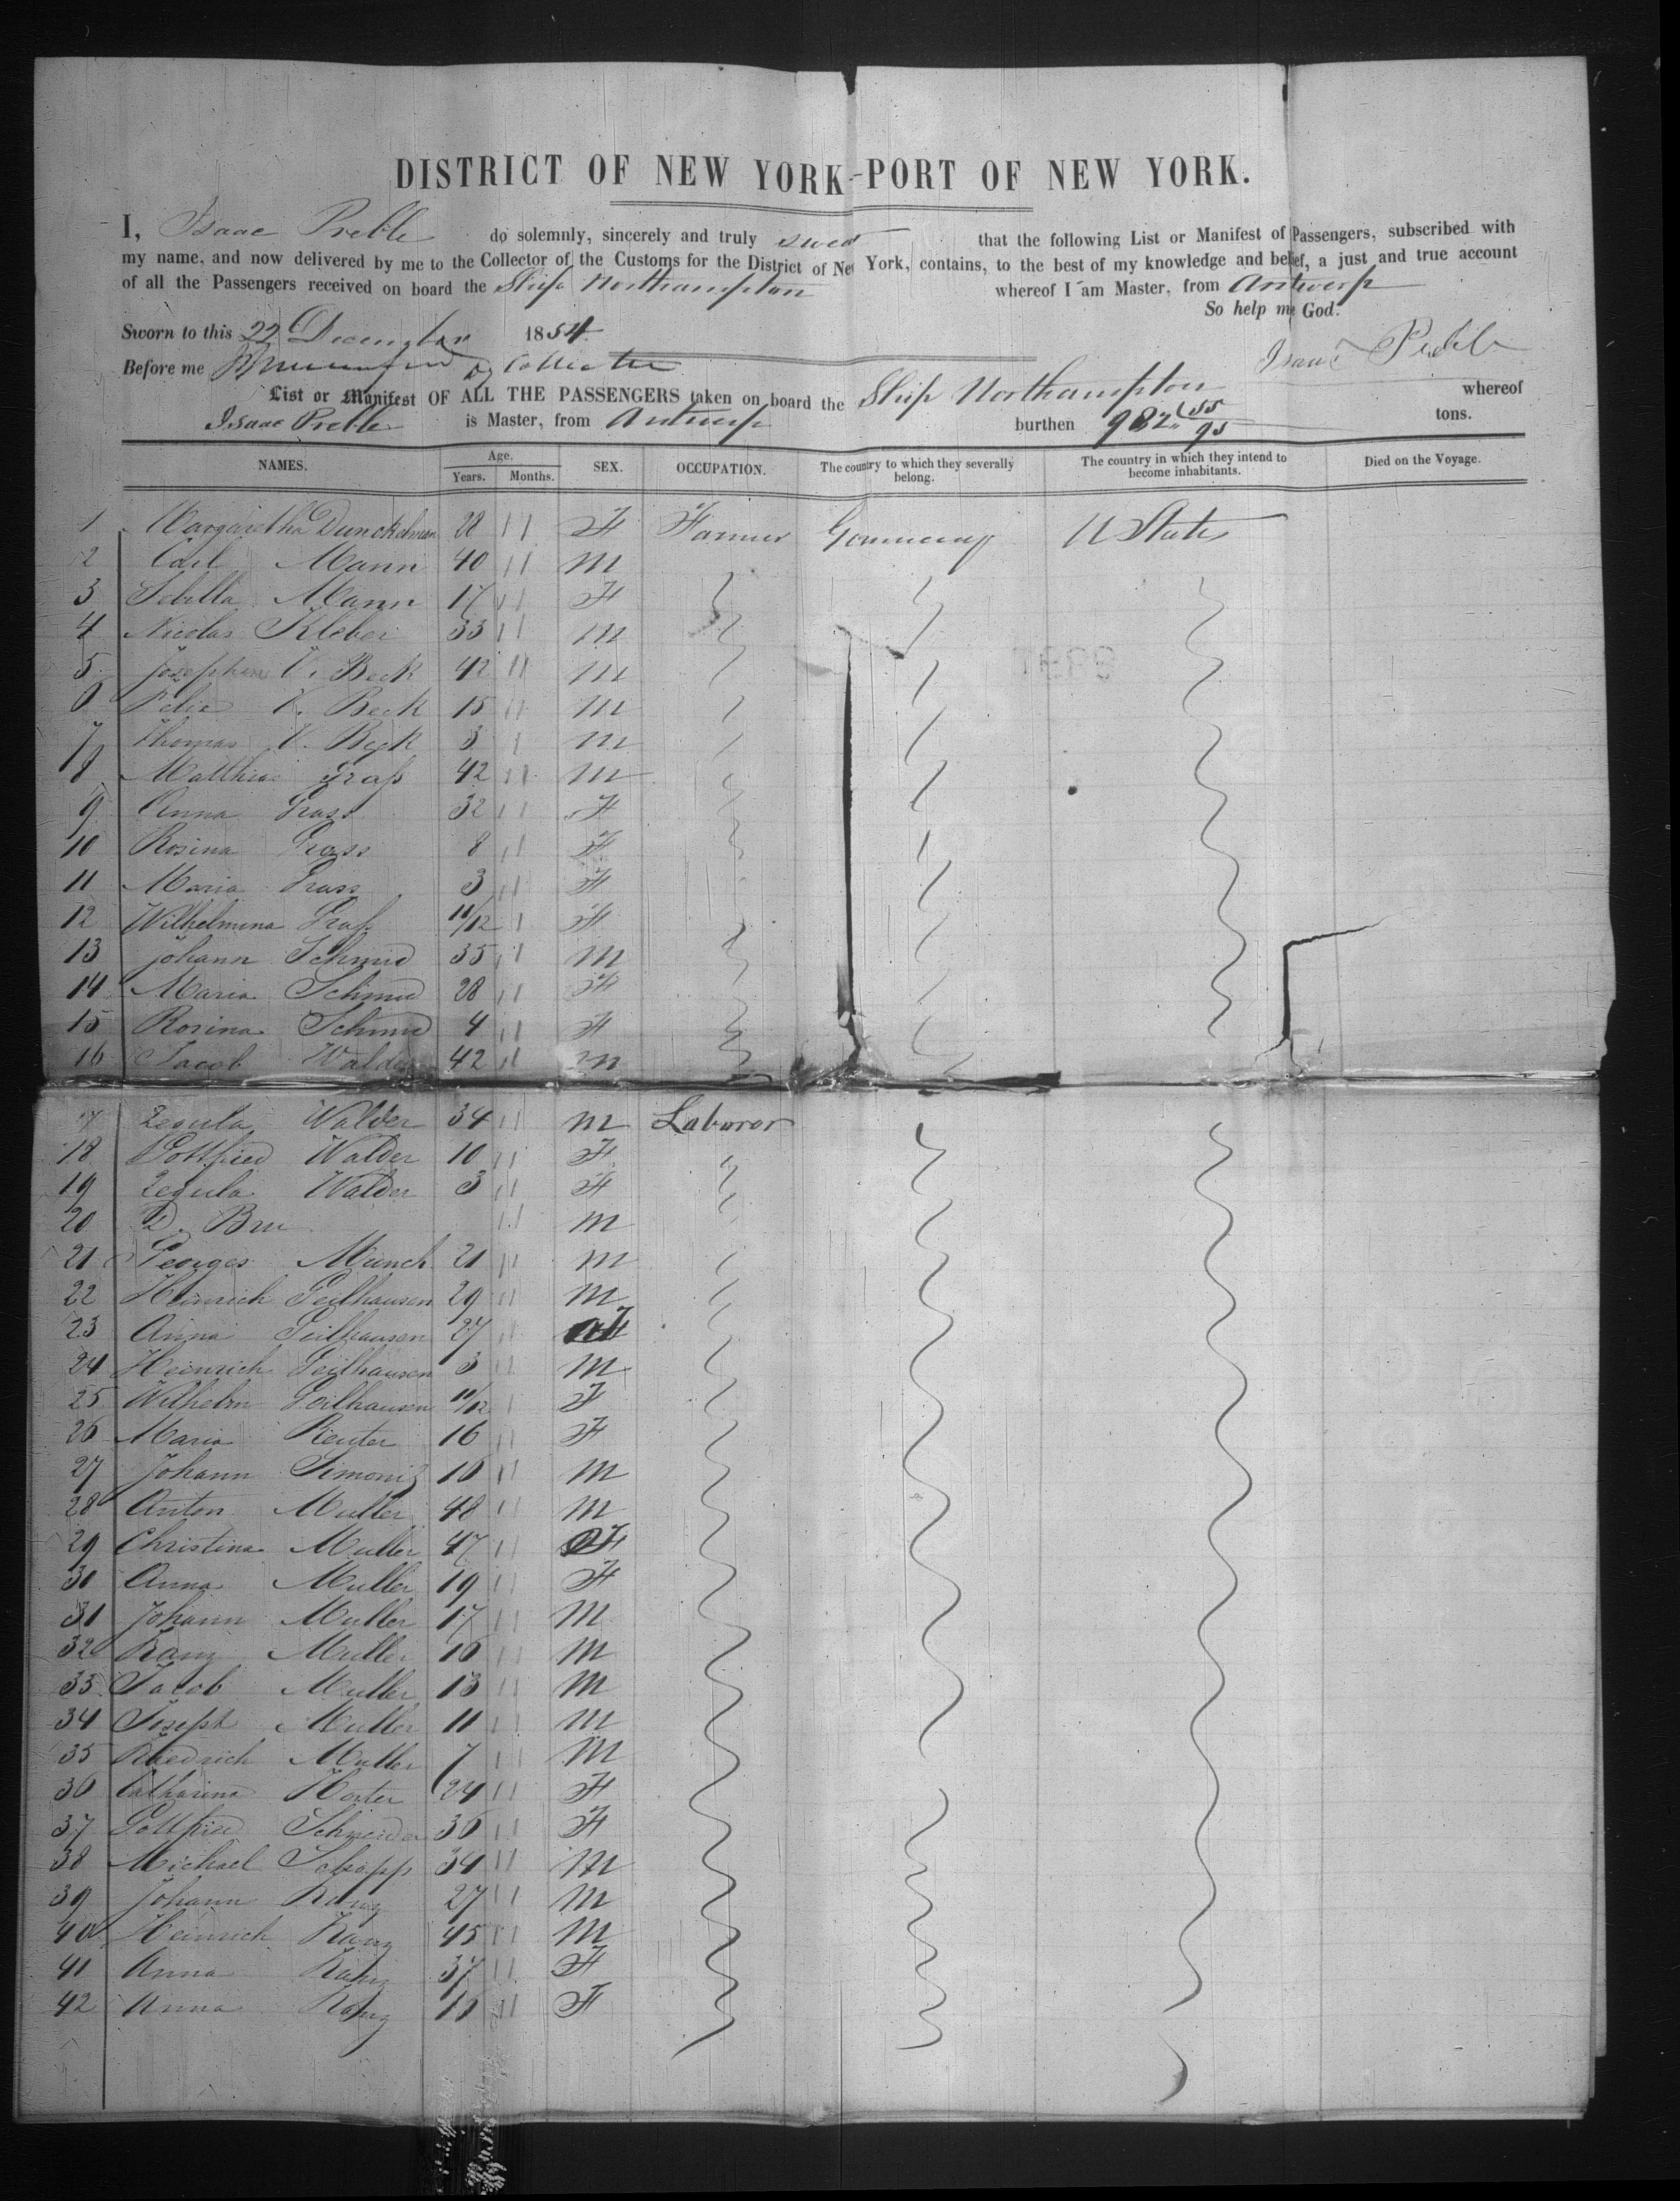 DISTRICT OF NEW YORK-PORT OF NEW YORK.
I, Isaac Preble do solemnly, sincerely and truly swear that the following List or Manifest of Passengers, subscribed with
my name, and now delivered by me to the Collector of the Customs for the District of New York, contains, to the best of my knowledge and belief, a just and true account
of all the Passengers received on board the Ship Northampton whereof I am Master, from Antwerp
So help me God.
Sworn to this 22 December 1854 Isaac Preble
Before me Dy Collector
List or Manifest OF ALL THE PASSENGERS taken on board the Ship Northampton whereof
Isaac Preble is Master, from Antwerp burthen 982 55/95 tons.
NAMES. Age. Years. Months. SEX. OCCUPATION. The country to which they severally belong. The country in which they intend to become inhabitants. Died on the Voyage.
1 Margaretha Dunckelman 28 " F Farmer Germany U States
2 Carl Mann 40 " M
3 Sebilla Mann 17 " F
4 Nicolas Kleber 33 " M
5 V. Beck 42 " M
6 V. Beck 15 " M
7 Thomas V. Beck 3 " M
8 Matthias Grass 42 " M
9 Anna Grass 32 " F
10 Rosina Grass 8 " F
11 Maria Grass 3 " F
12 Wilhelmina Grass 11/12 " F
13 Johann Schmid 35 " M
14 Maria Schmid 28 " F
15 Rosina Schmid 4 " F
16 Jacob Walder 42 " M
17 Regula Walder 34 " M Laborer
18 Gottfried Walder 10 " F
19 Regula Walder 3 " F
20 D. Bru " M
21 Georges Münch 21 " M
22 Heinrich Geilhausen 29 " M
23 Anna Geilhausen 27 " F
24 Heinrich Geilhausen 3 " M
25 Wilhelm Geilhausen 11/12 " F
26 Maria Reuter 16 " F
27 Johann Simoni 16 " M
28 Anton Muller 48 " M
29 Christina Muller 47 " F
30 Anna Muller 19 " F
31 Johann Muller 17 " M
32 Muller 16 " M
33 Jacob Muller 13 " M
34 Joseph Muller 11 " M
35 Friedrich Muller 7 " M
36 Catharina 24 " F
37 Gottfried Schneider 36 " F
38 Michael Schapp 34 " M
39 Johann 27 " M
40 Heinrich 45 " M
41 Anna 37 " F
42 Anna " F